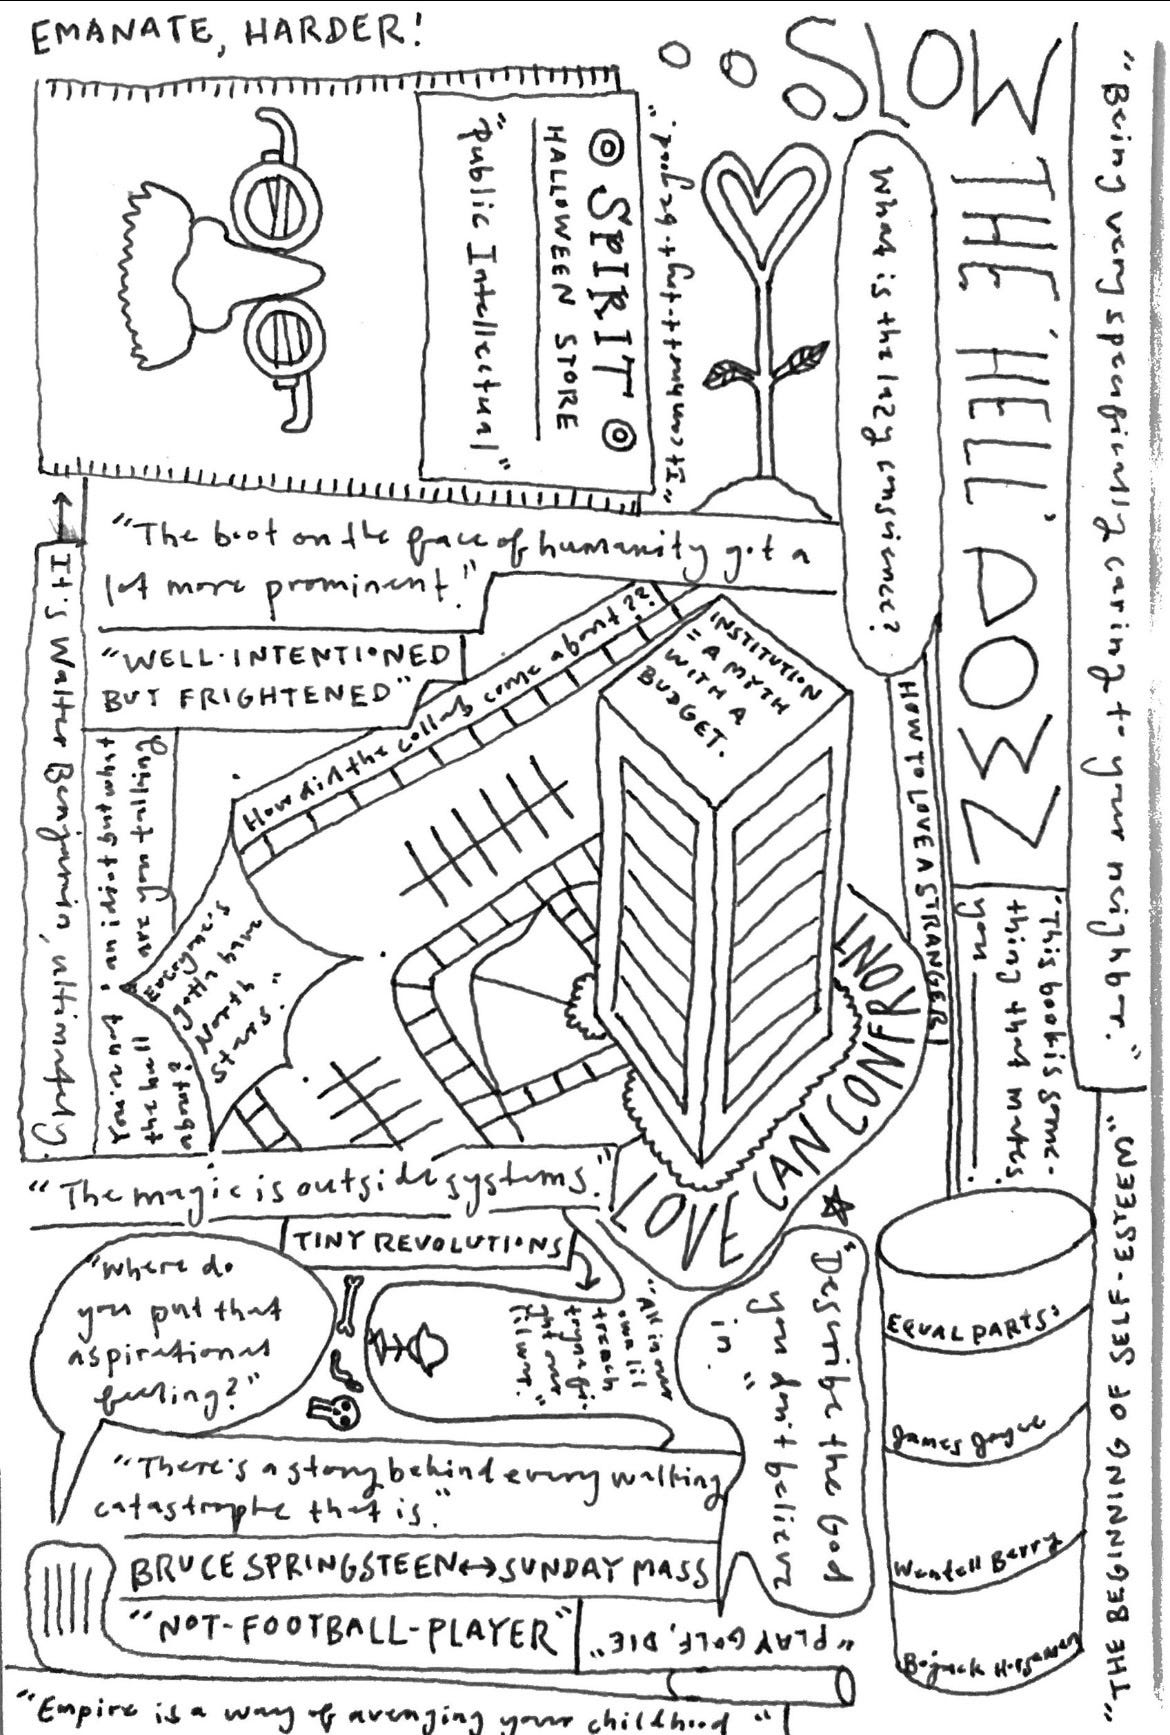 EMANATE, HARDER!
SLOW
THE 'HELL'
DOWN
"Being very specifically caring to your neighbor."
What is the lazy consience?
◎ SPIRIT ◎
HALLOWEEN STORE
"Public Intellectual"
"The boot on the face of humanity got a
lot more prominent."
"WELL-INTENTIONED
BUT FRIGHTENED"
How did the collab come about??
INSTITUTION
"A MYTH
WITH A
BUDGET.
HOW TO LOVE A STRANGER
"This book is some-
thing that makes
you
← It's Walter Benjamin, ultimately.
Everyone's
gotta have
North
Stars."
what
are you telling
the hell
about?
LOVE CAN CONFRONT
"The magic is outside systems."
TINY REVOLUTIONS
"Where do
you put that
aspirational
feeling?"
"All in our
own lil
trench
together
lil war."
"Describe the God
you don't believe
in."
EQUAL PARTS:
James Joyce
Wendell Berry
Bojack Horseman
"THE BEGINNING OF SELF-ESTEEM"
"There's a story behind every walking
catastrophe that is."
BRUCE SPRINGSTEEN ↔ SUNDAY MASS
"NOT-FOOTBALL-PLAYER"
"PLAY GOLF, DIE."
"Empire is a way of avenging your childhood"